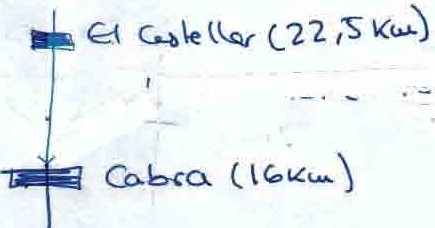 El Castellar (22,5 Km)
Cabra (16Km)